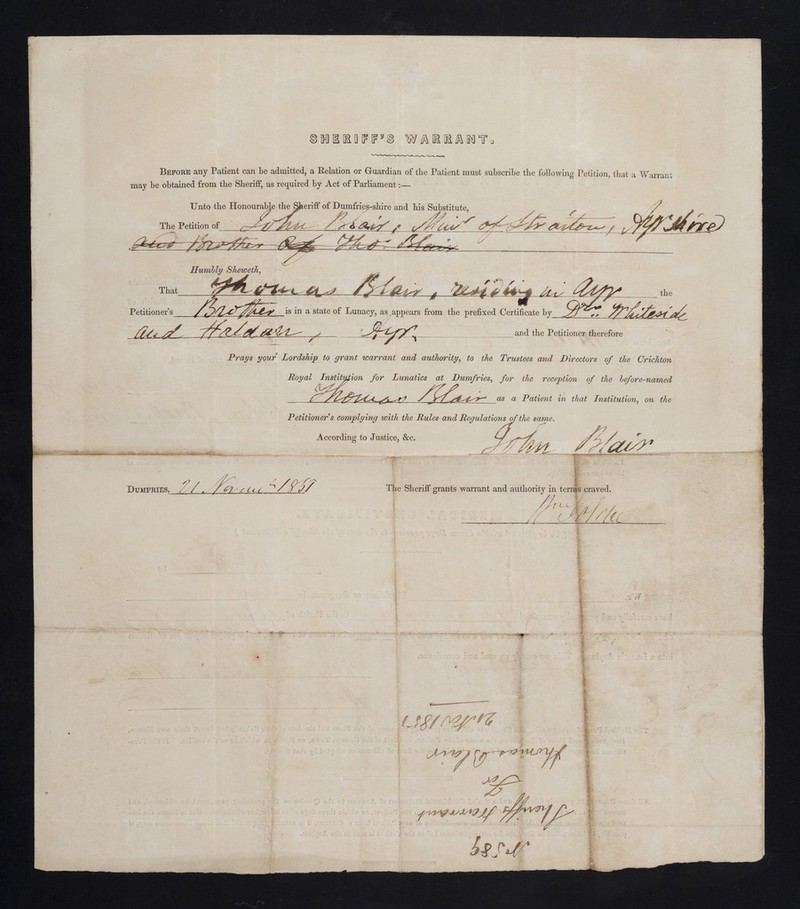 SHERIFF'S WARRANT.
BEFORE any Patient can be admitted, a Relation or Guardian of the Patient must subscribe the following Petition, that a Warrant
may be obtained from the Sheriff, as required by Act of Parliament :—
Unto the Honourable the Sheriff of Dumfries-shire and his Substitute,
The Petition of John Blair, of Straiton, Ayrshire
and Brother of Tho. Blair
Humbly Sheweth,
That Thomas Blair, residing in Ayr the
Petitioner's Brother is in a state of Lunacy, as appears from the prefixed Certificate by Drs. Whiteside
and Haldan, Ayr, and the Petitioner therefore
Prays your Lordship to grant warrant and authority, to the Trustees and Directors of the Crichton
Royal Institution for Lunatics at Dumfries, for the reception of the before-named
Thomas Blair as a Patient in that Institution, on the
Petitioner's complying with the Rules and Regulations of the same.
According to Justice, &c. John Blair
DUMFRIES, 21 Novem 1851 The Sheriff grants warrant and authority in terms craved.
No 589
Sheriffs Warrant
For
Thomas Blair
21 Nov 1851